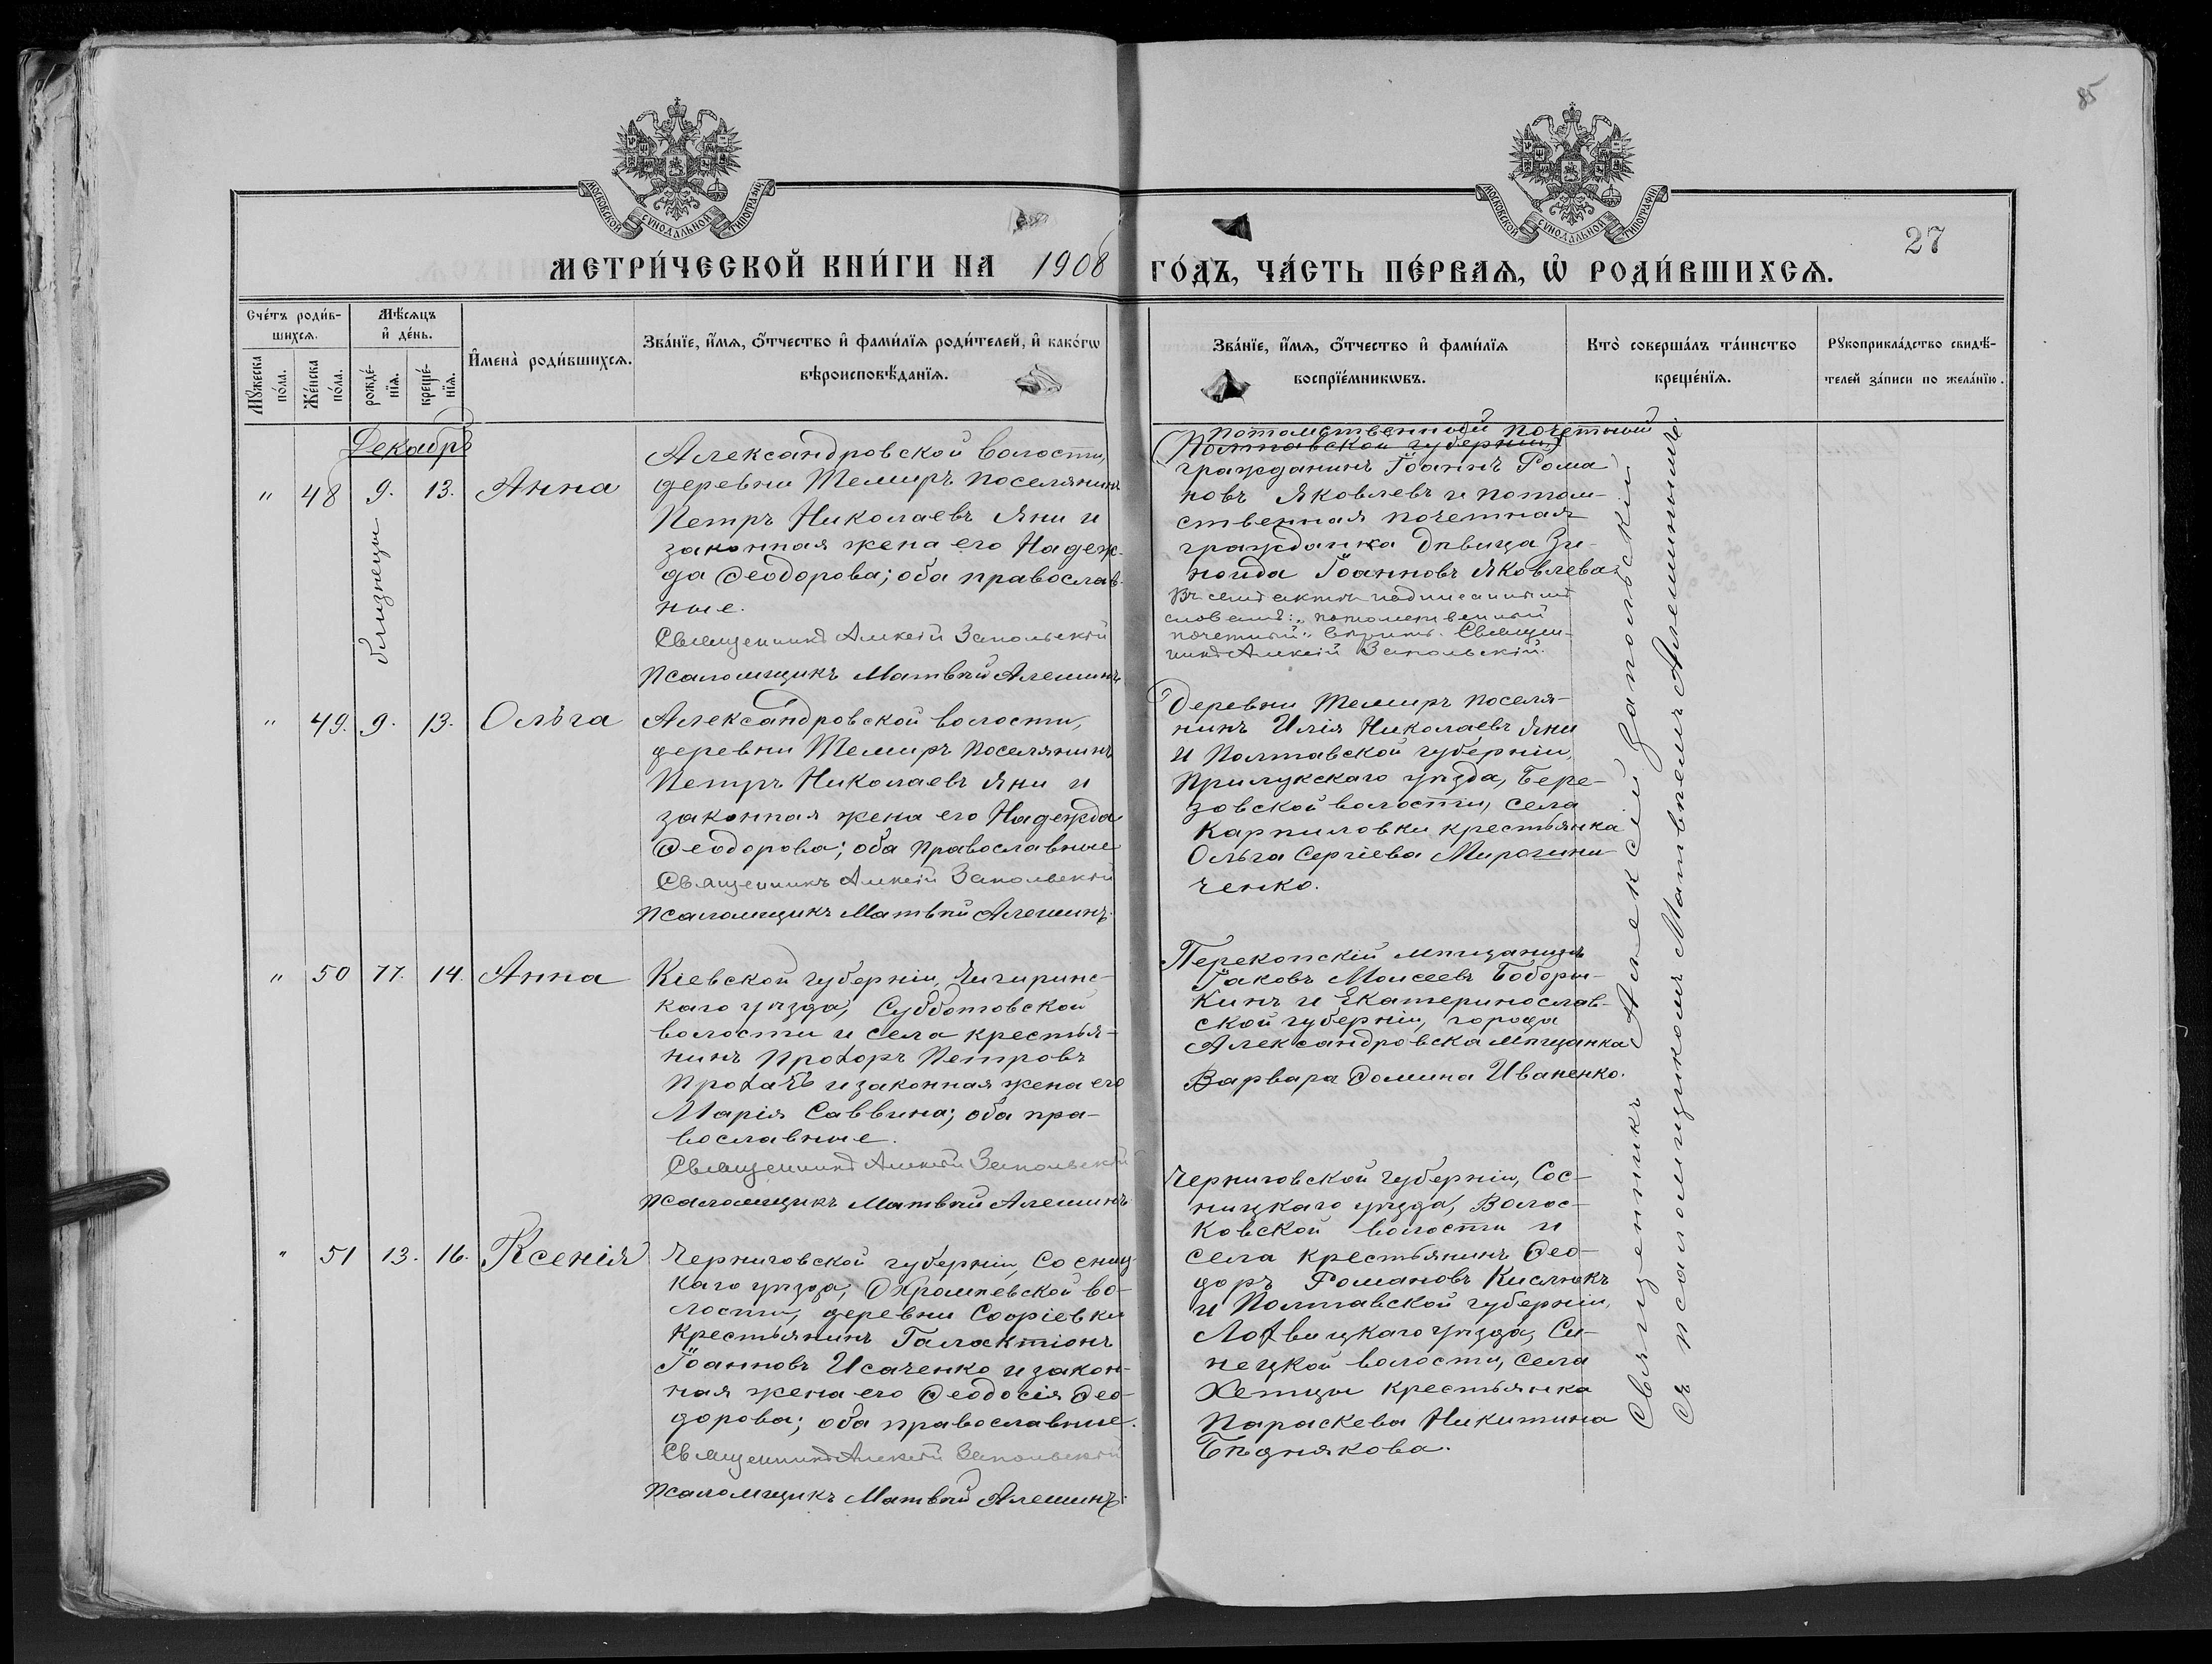 85
27
МОСКОВСКОЙ СѴНОДАЛЬНОЙ ТИПОГРАФІИ
МОСКОВСКОЙ СѴНОДАЛЬНОЙ ТИПОГРАФІИ
МЕТРИ́ЧЕСКОЙ КНИ́ГИ НА 1908 ГО́ДЪ, ЧА́СТЬ ПЕ́РВАѦ, Ѡ҆ РОДИ́ВШИХСѦ.
Сче́тъ роди́в-
шихсѧ.
Мꙋ́жеска
по́ла.
Же́нска
по́ла.
Мѣ́сѧцъ
и҆ де́нь.
рожде́-
нїѧ.
креще́-
нїѧ.
И҆мена̀ роди́вшихсѧ.
Зва́нїе, и҆́мѧ, ѻ҆́тчество и҆ фами́лїѧ роди́телей, и҆ како́гѡ
вѣроисповѣ́данїѧ.
Зва́нїе, и҆́мѧ, ѻ҆́тчество и҆ фами́лїѧ
воспрїе́мникѡвъ.
Кто̀ соверша́лъ та́инство
креще́нїѧ.
Рꙋкоприкла́дство свидѣ́-
телей за́писи по жела́нїю.
Декабрь
" 48 9. 13. Анна
близнецы
Александровской волости,
деревни Темиръ поселянинъ
Петръ Николаевъ Яни и
законная жена его Надеж-
да Ѳеодорова; оба православ-
ные.
Священникъ Алексій Запольскій
Псаломщикъ Матвѣй Алешинъ
потомственный почетный
(Полтавской губерніи)
гражданинъ Іоаннъ Рома
новъ Яковлевъ и потом-
ственная почетная
гражданка дѣвица Зи-
ноида Іоаннова Яковлева.
Въ семъ актѣ надписанныя
словамъ: „потомственный
почетный" вѣрить. Священ-
никъ Алексій Запольскій.
" 49. 9. 13. Ольга
Александровской волости,
деревни Темиръ поселянинъ
Петръ Николаевъ Яни и
законная жена его Надежда
Ѳеодорова; оба православные
Священникъ Алексій Запольскій
Псаломщикъ Матвѣй Алешинъ.
Деревни Темиръ поселя-
нинъ Илія Николаевъ Яни
и Полтавской губерніи,
Прилукскаго уѣзда, Бере-
зовской волости, села
Карпиловки крестьянка
Ольга Сергіева Мирогини-
ченко.
" 50 11. 14. Анна
Кіевской губерніи, Чигиринс-
каго уѣзда, Субботовской
волости и села крестья-
нинъ Прохоръ Петровъ
Прохачъ и законная жена его
Марія Саввина; оба пра-
вославные.
Священникъ Алексій Запольскій
Псаломщикъ Матвѣй Алешинъ
Перекопскій мѣщанинъ
Іаковъ Моисеевъ Боборы-
кинъ и Екатеринослав-
ской губерніи, города
Александровска мѣщанка
Варвара Ѳомина Иваненко.
" 51 13. 16. Ксенія
Черниговской губерніи, Сосниц-
каго уѣзда, Охрамѣевской во-
лости, деревни Софіевки
крестьянинъ Галактіонъ
Іоанновъ Исаченко и закон-
ная жена его Ѳеодосія Ѳео-
дорова; оба православные.
Священникъ Алексій Запольскій
Псаломщикъ Матвѣй Алешинъ.
Черниговской губерніи, Сос-
ницкаго уѣзда, Волос-
ковской волости и
села крестьянинъ Ѳео-
доръ Романовъ Кислюкъ
и Полтавской губерніи,
Лохвицкаго уѣзда, Си-
нецкой волости, села
крестьянка
Параскева Никитина
Бѣднякова.
Священникъ Алексій Запольскій
съ псаломщикомъ Матвѣемъ Алешинымъ.